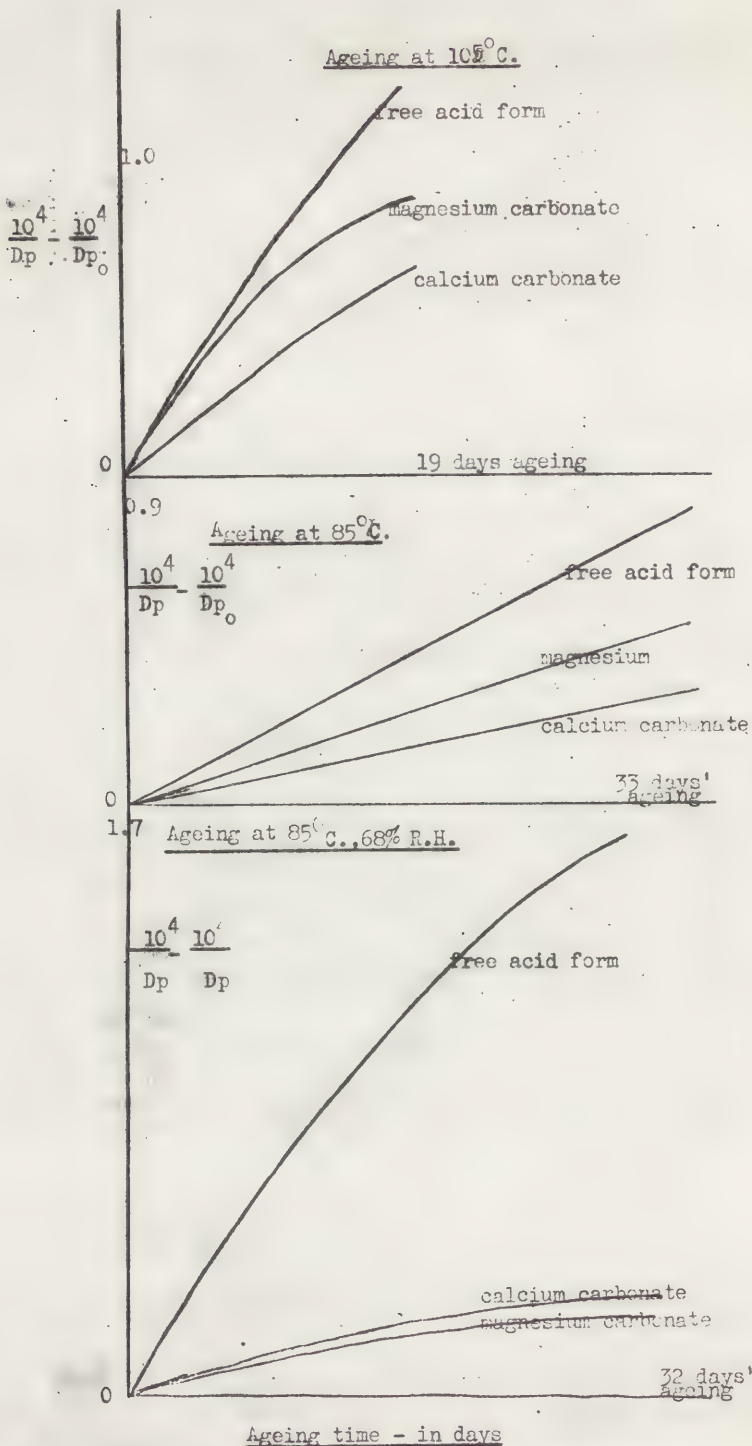 Ageing at 105°C.
free acid form
1.0
magnesium carbonate
10⁴ - 10⁴
Dp Dp₀
calcium carbonate
0
19 days ageing
0.9
Ageing at 85°C.
10⁴ - 10⁴
Dp Dp₀
free acid form
magnesium
calcium carbonate
33 days'
ageing
0
1.7
Ageing at 85°C.,68% R.H.
10⁴ - 10⁴
Dp Dp
free acid form
calcium carbonate
magnesium carbonate
32 days'
ageing
0
Ageing time - in days